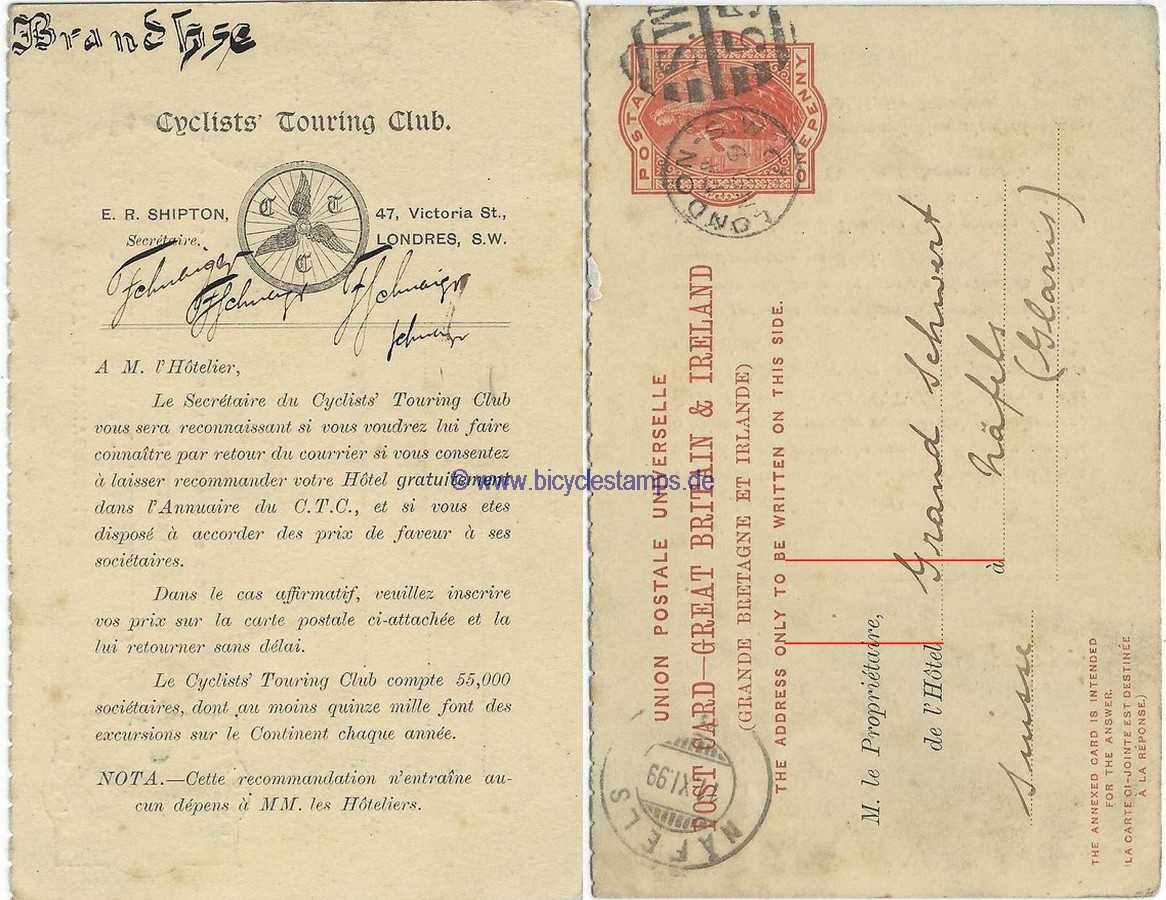 Cyclists' Touring Club.
E. R. SHIPTON,
Secrétaire.
C T C
47, Victoria St.,
LONDRES, S.W.
A M. l'Hôtelier,
Le Secrétaire du Cyclists' Touring Club
vous sera reconnaissant si vous voudrez lui faire
connaître par retour du courrier si vous consentez
à laisser recommander votre Hôtel gratuitement
dans l'Annuaire du C.T.C., et si vous etes
disposé à accorder des prix de faveur à ses
sociétaires.
Dans le cas affirmatif, veuillez inscrire
vos prix sur la carte postale ci-attachée et la
lui retourner sans délai.
Le Cyclists' Touring Club compte 55,000
sociétaires, dont au moins quinze mille font des
excursions sur le Continent chaque année.
NOTA.—Cette recommandation n'entraîne au-
cun dépens à MM. les Hôteliers.
© www.bicyclestamps.de
POSTAGE ONE PENNY
LONDON
S.W.
UNION POSTALE UNIVERSELLE
POST CARD—GREAT BRITAIN & IRELAND
(GRANDE BRETAGNE ET IRLANDE)
THE ADDRESS ONLY TO BE WRITTEN ON THIS SIDE.
NÄFELS
XI.99
M. le Propriétaire,
de l'Hôtel Grand Schwert
à Näfels
(Glarus)
Suisse
THE ANNEXED CARD IS INTENDED
FOR THE ANSWER.
(LA CARTE CI-JOINTE EST DESTINÉE
À LA RÉPONSE.)